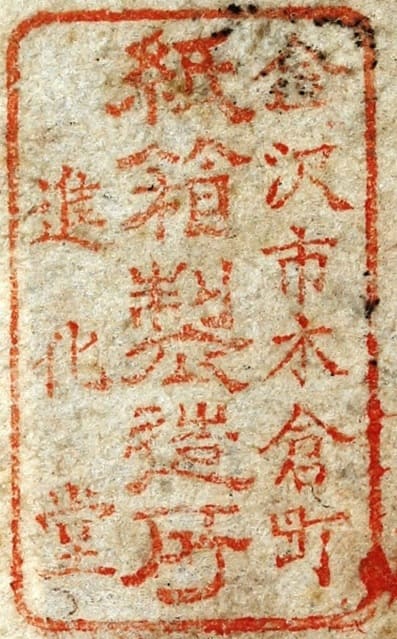 金沢市木倉町
紙箱製造所
進化堂